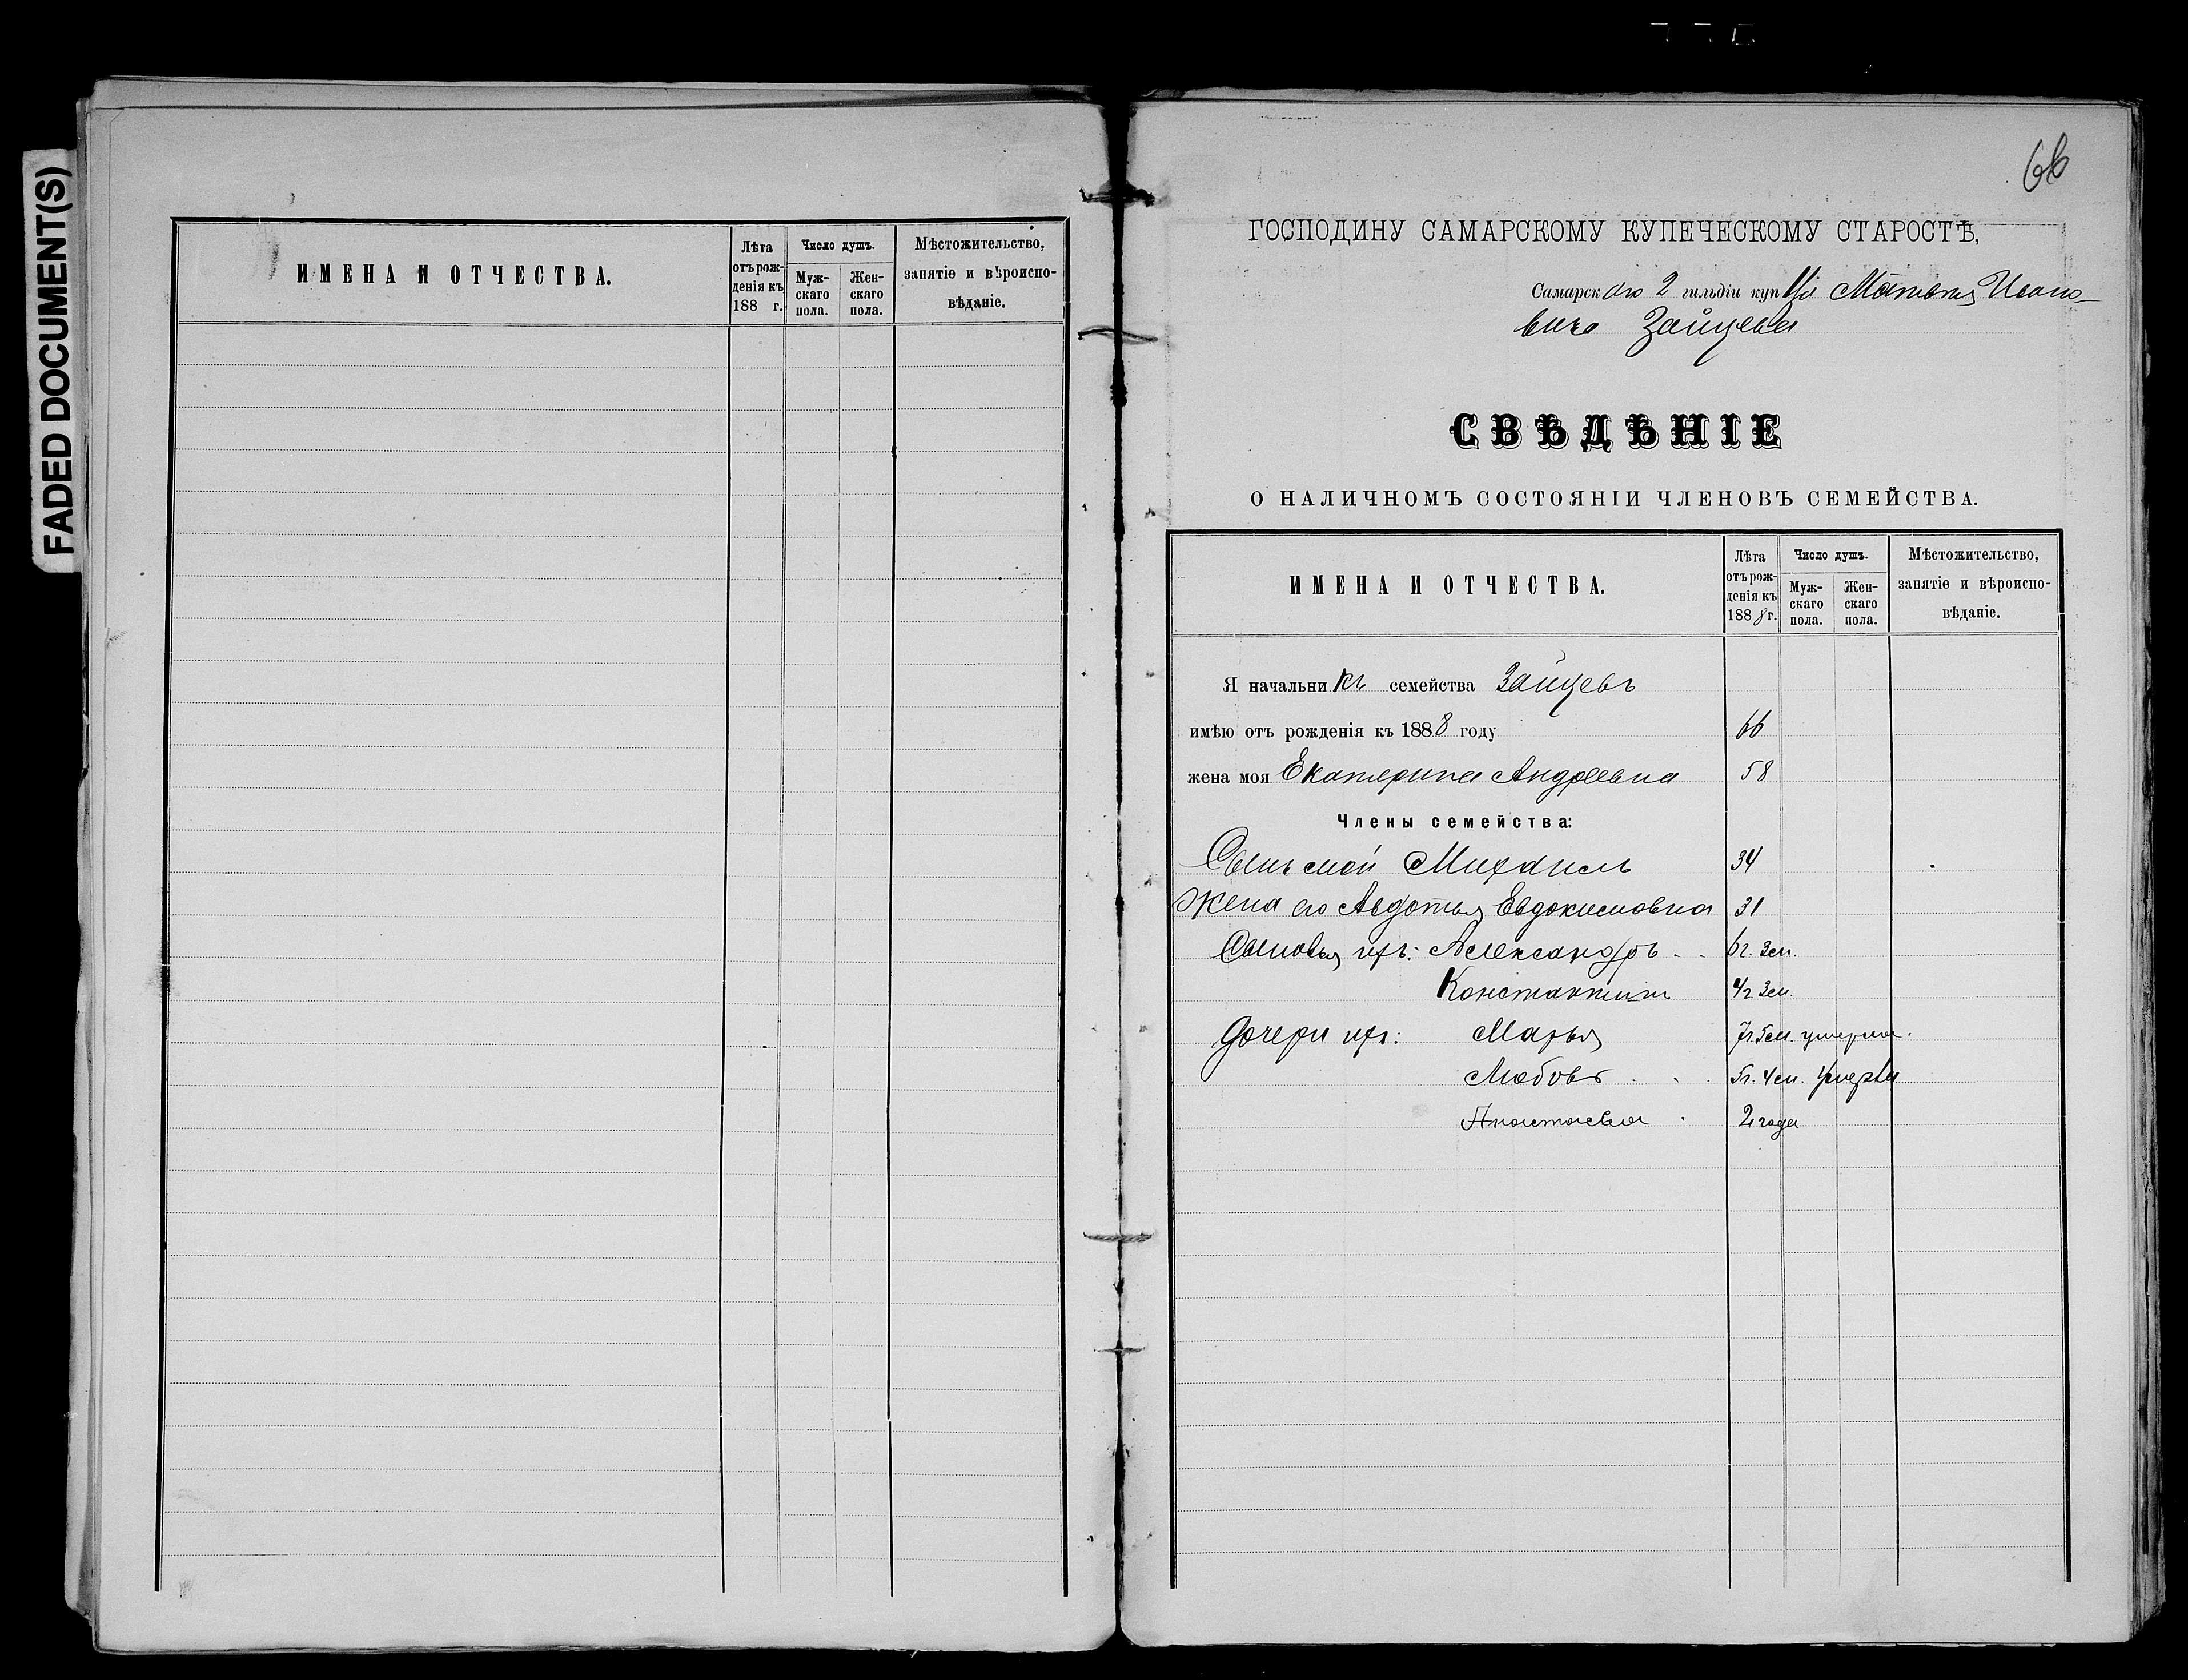 FADED DOCUMENT(S)
ИМЕНА И ОТЧЕСТВА.
Лѣта отъ рожденія къ 188 г.
Число душъ.
Мужскаго пола.
Женскаго пола.
Мѣстожительство, занятіе и вѣроисповѣданіе.
66
ГОСПОДИНУ САМАРСКОМУ КУПЕЧЕСКОМУ СТАРОСТѢ,
Самарскаго 2 гильдіи купца Матвея Ивано-
вича Зайцева
СВѢДѢНІЕ
О НАЛИЧНОМЪ СОСТОЯНІИ ЧЛЕНОВЪ СЕМЕЙСТВА.
ИМЕНА И ОТЧЕСТВА.
Лѣта отъ рожденія къ 1888 г.
Число душъ.
Мужскаго пола.
Женскаго пола.
Мѣстожительство, занятіе и вѣроисповѣданіе.
Я начальникъ семейства Зайцевъ
имѣю отъ рожденія къ 1888 году 66
жена моя Екатерина Андреевна 58
Члены семейства:
Сынъ мой Михаилъ 34
Жена его Авдотья Евдокимовна 31
Сыновья ихъ: Александръ 6 г. 3 м.
Константинъ 4 г. 3 м.
Дочери ихъ: Марья 7 г. 5 м. умерла.
Любовь 5 г. 4 м. умерла
Анастасія 2 года